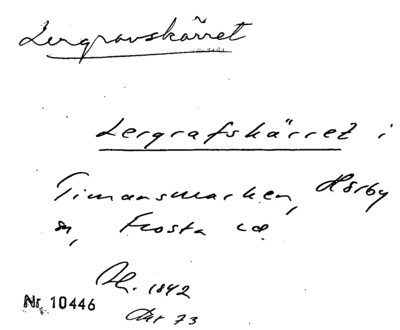 Lergravskärret
Lergrafskärret i
Timansmarken, Hörby
sn, Frosta hd.
1842
Akt 73
Nr 10446